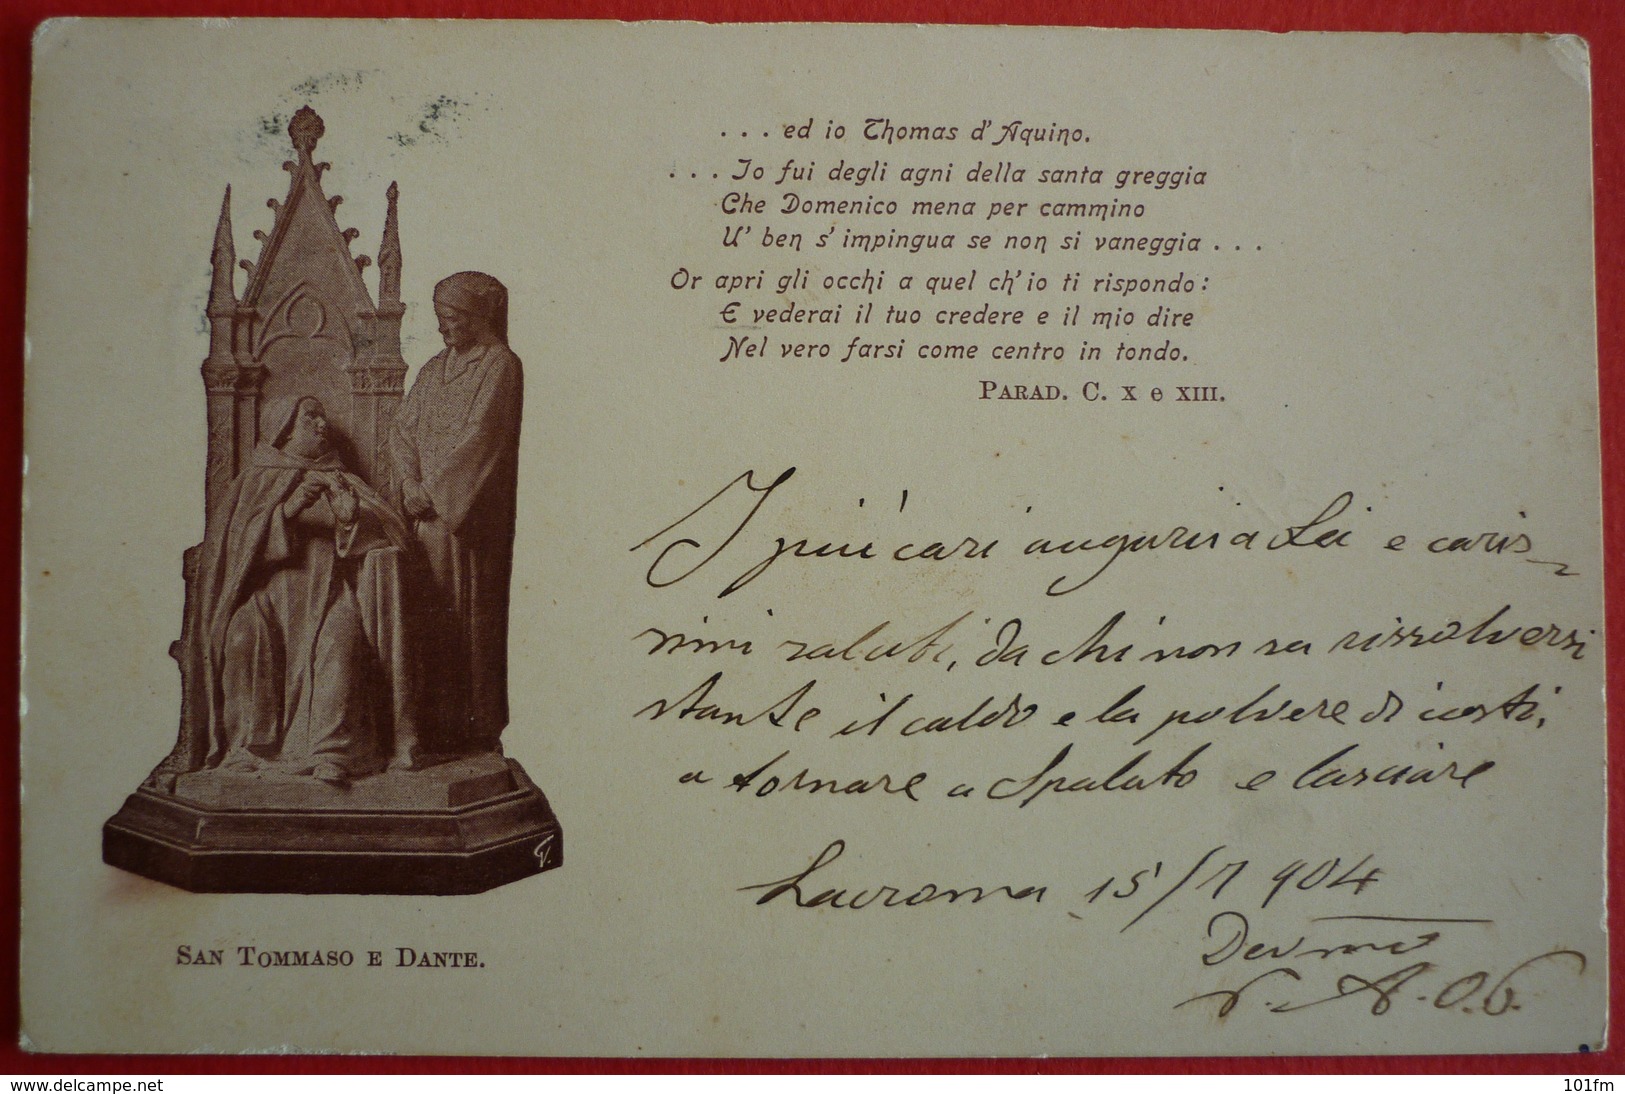 . . . ed io Thomas d' Aquino.
. . . Io fui degli agni della santa greggia
Che Domenico mena per cammino
U' ben s' impingua se non si vaneggia . . .
Or apri gli occhi a quel ch' io ti rispondo:
E vederai il tuo credere e il mio dire
Nel vero farsi come centro in tondo.
PARAD. C. X e XIII.
I più cari auguri a Lei e caris-
simi saluti, da chi non sa rissolversi
stante il caldo e la polvere di costì,
a tornare a Spalato e lasciare
Lacroma 15/7 904
SAN TOMMASO E DANTE.
www.delcampe.net
101fm